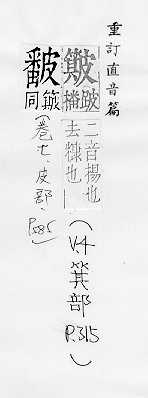 重訂直音篇
跛播二音揚也去糠也
(V4箕部P.315)
同
(卷七.皮部.